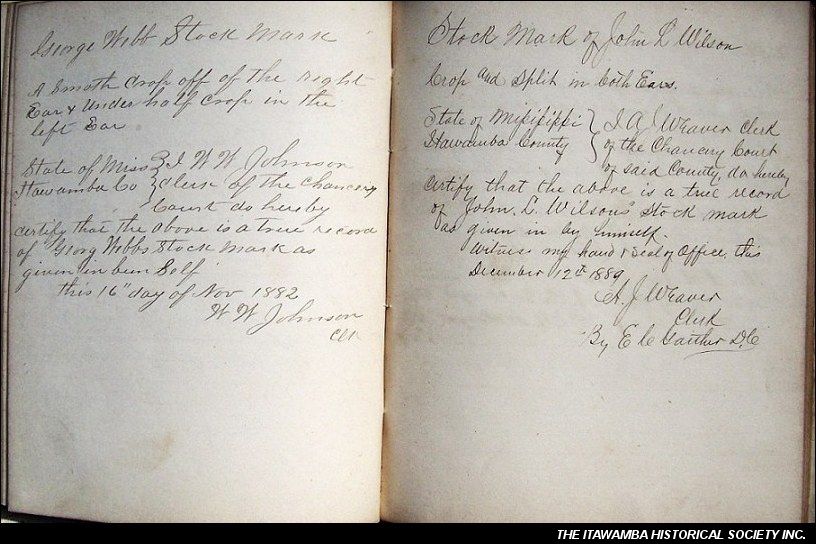 George Webb Stock Mark
A Smoth Crop off of the right
Ear & Under half Crop in the
left Ear
State of Miss } I W W Johnson
Itawamba Co } Clerk of the Chancery
Court do hereby
certify that the above is a true record
of Georg Webbs Stock Mark as
given in been Self
this 16" day of Nov 1882
W W Johnson
Clk
Stock Mark of John L Wilson
Crop and Split in both Ears.
State of Mississippi } I A J Weaver Clerk
Itawamba County } of the Chancery Court
of said County, do hereby
certify that the above is a true record
of John. L. Wilsons Stock mark
as given in by himself.
Witness my hand & Seal of Office, this
December 12th 1889
A. J Weaver
Clerk
By E C Gaither D.C
THE ITAWAMBA HISTORICAL SOCIETY INC.